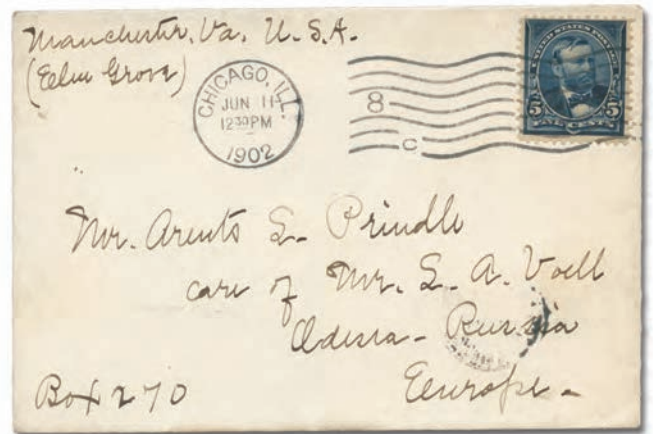 Manchester, Va. U.S.A.
(Eelm Grove)
CHICAGO, ILL.
JUN 11
12 30 PM
1902
8
C
UNITED STATES POSTAGE
5 5
FIVE CENTS
Mr. Arents S. Prindle
care of Mr. S. A. Voell
Odessa - Russia
Eeurope -
Box 270